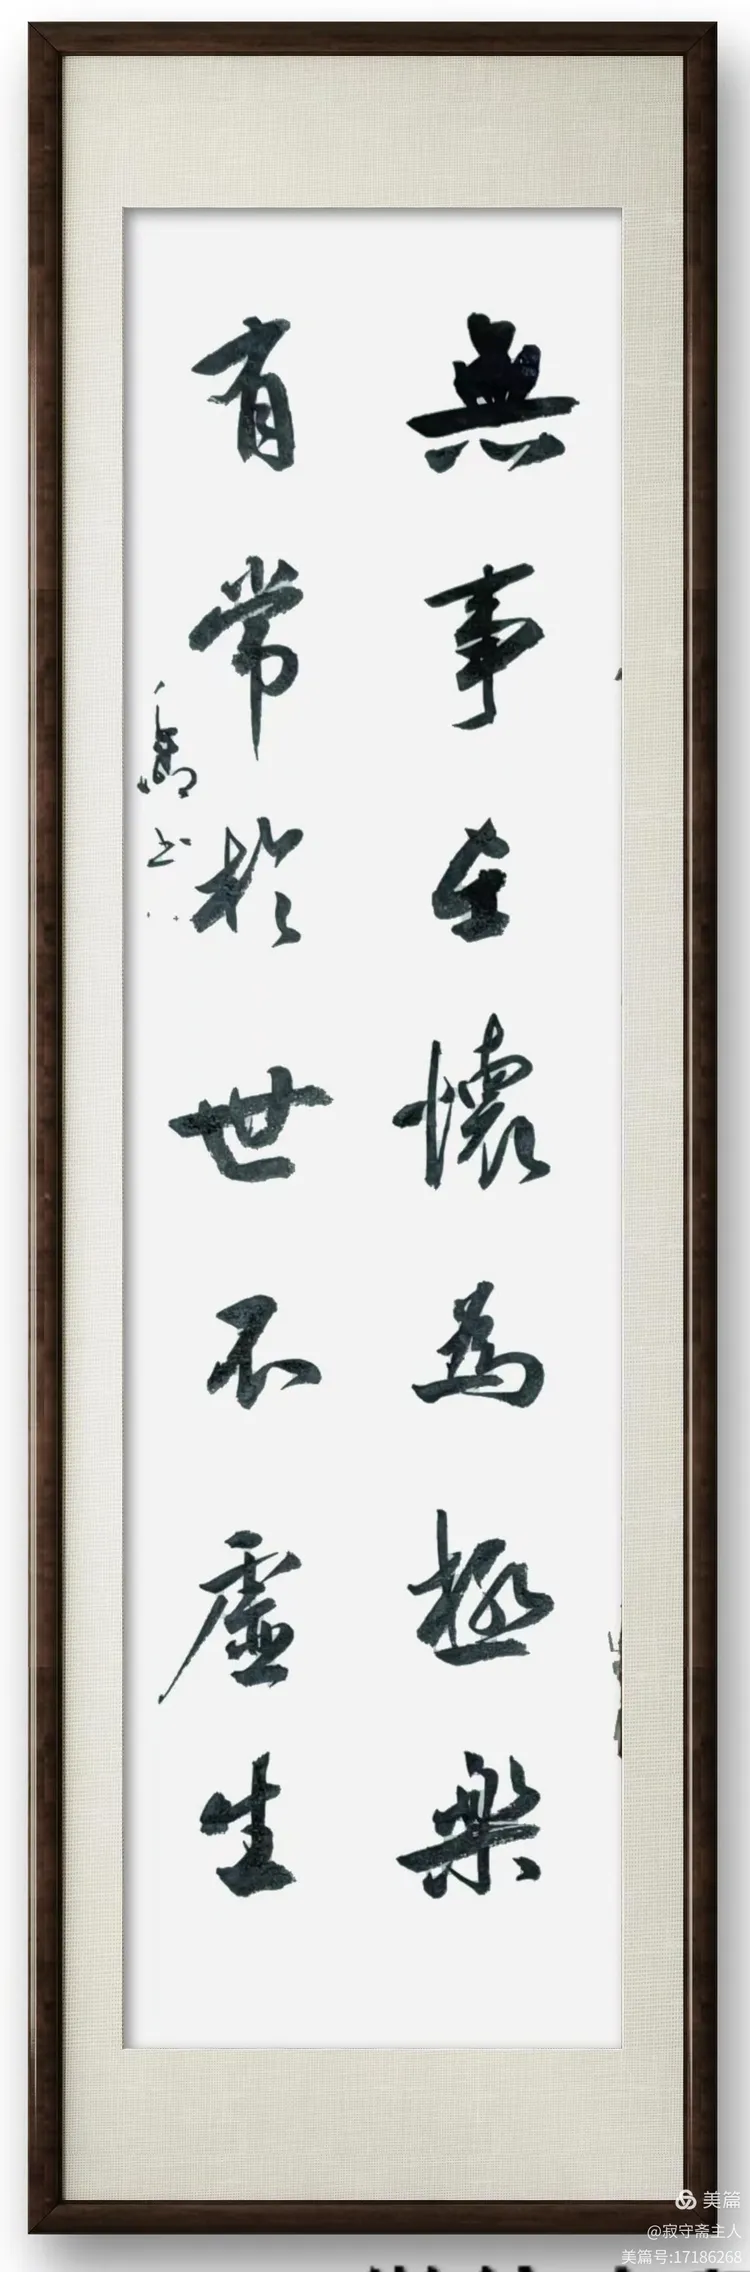 無事在懷為極樂
有常於世不虛生
美篇
@寂守斋主人
美篇号:17186268